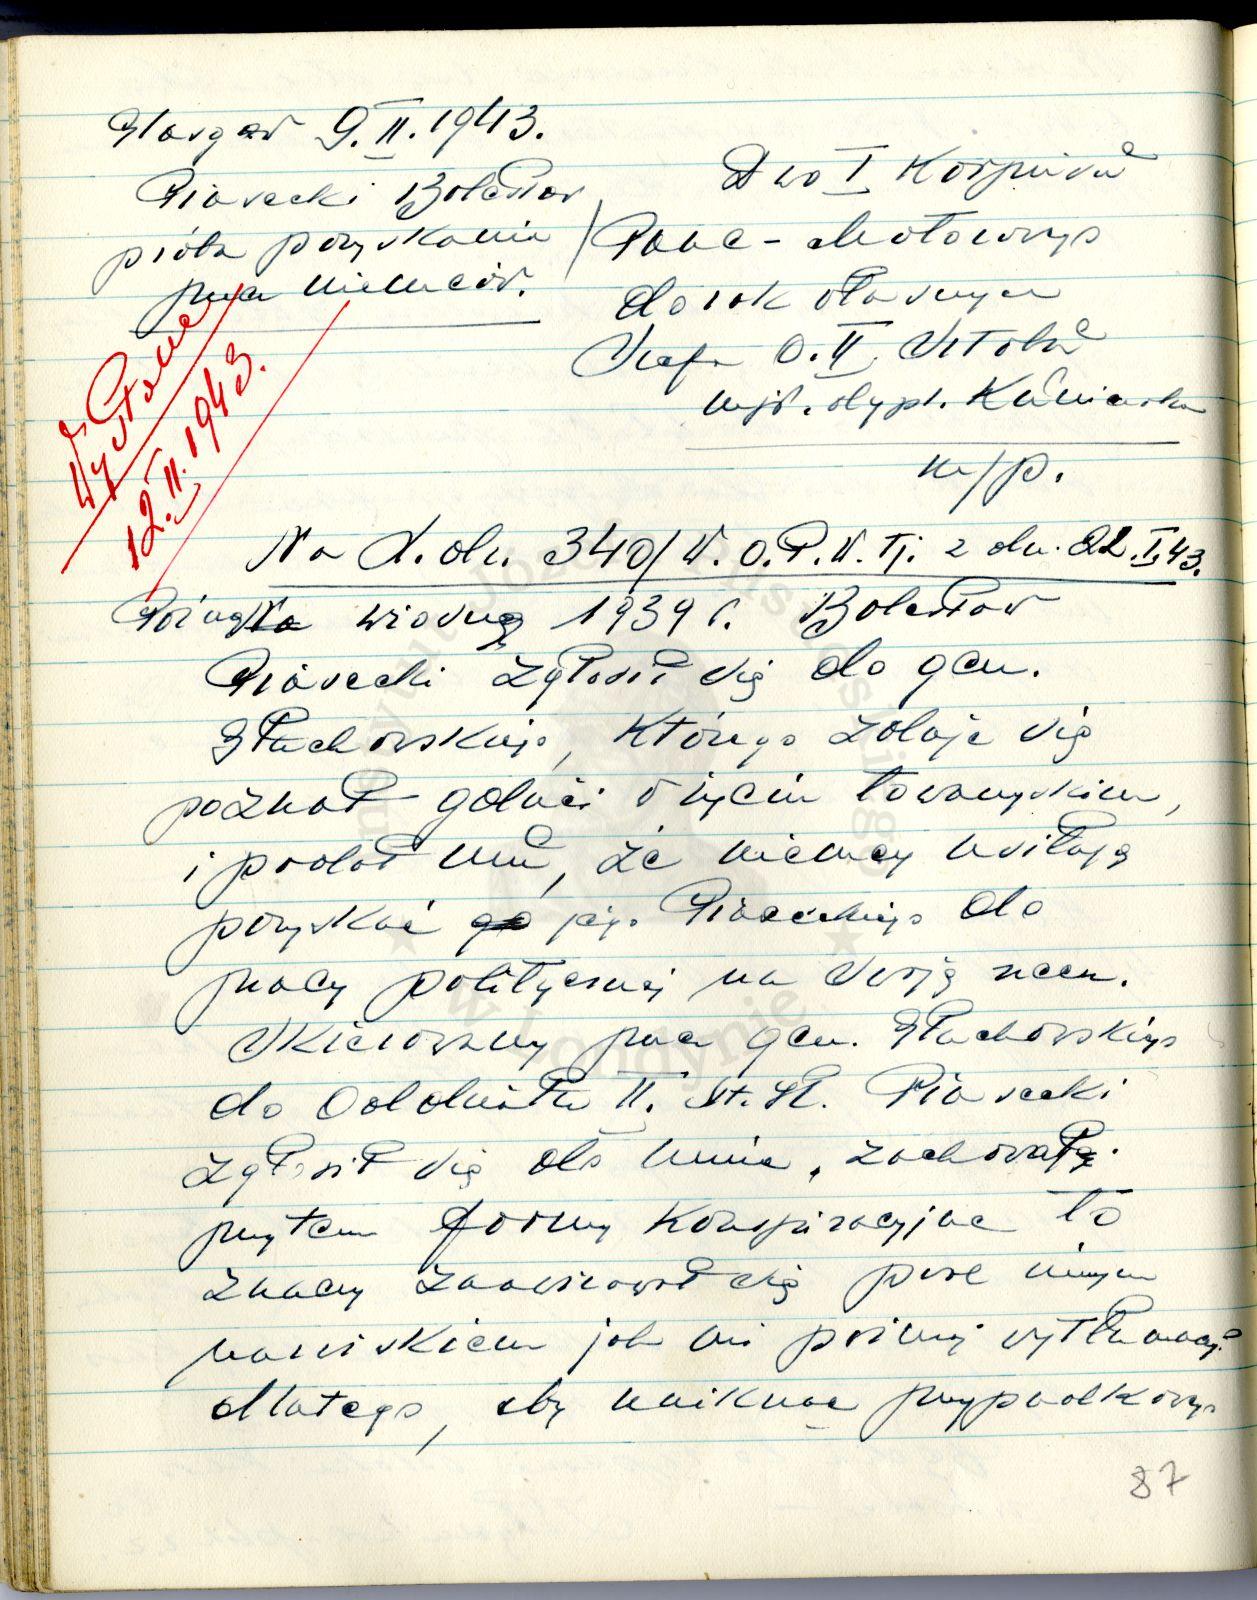 Glasgow 9.II.1943.
Piasecki Bolesław
próba pozyskania
przez niemców.
Dwo I Korpusu
Panc-Motorowego
do rąk własnych
Szefa O.II Sztabu
mjr. dypl. Kuniewska
m/p.
Wysłane
12.II.1943.
Na L.dn. 340/W.O.P.W.Tj. z dn. 22.I.43.
Późną wiosną 1939 r. Bolesław
Piasecki zgłosił się do gen.
Stachowskiego, którego zdaje się
poznał gdzieś w życiu towarzyskim,
i podał mu, że niemcy usiłują
pozyskać jego Piaseckiego do
pracy politycznej na swoją rzecz.
Skierowany przez gen. Stachowskiego
do Oddziału II. Szt. Gł. Piasecki
zgłosił się do mnie, zachowując
przytem formy konspiracyjne to
znaczy zaanonsował się pod innym
nazwiskiem jak mi później wytłumaczył
dlatego, aby uniknąć przypadkowego
87
Instytut Józefa Piłsudskiego
w Londynie